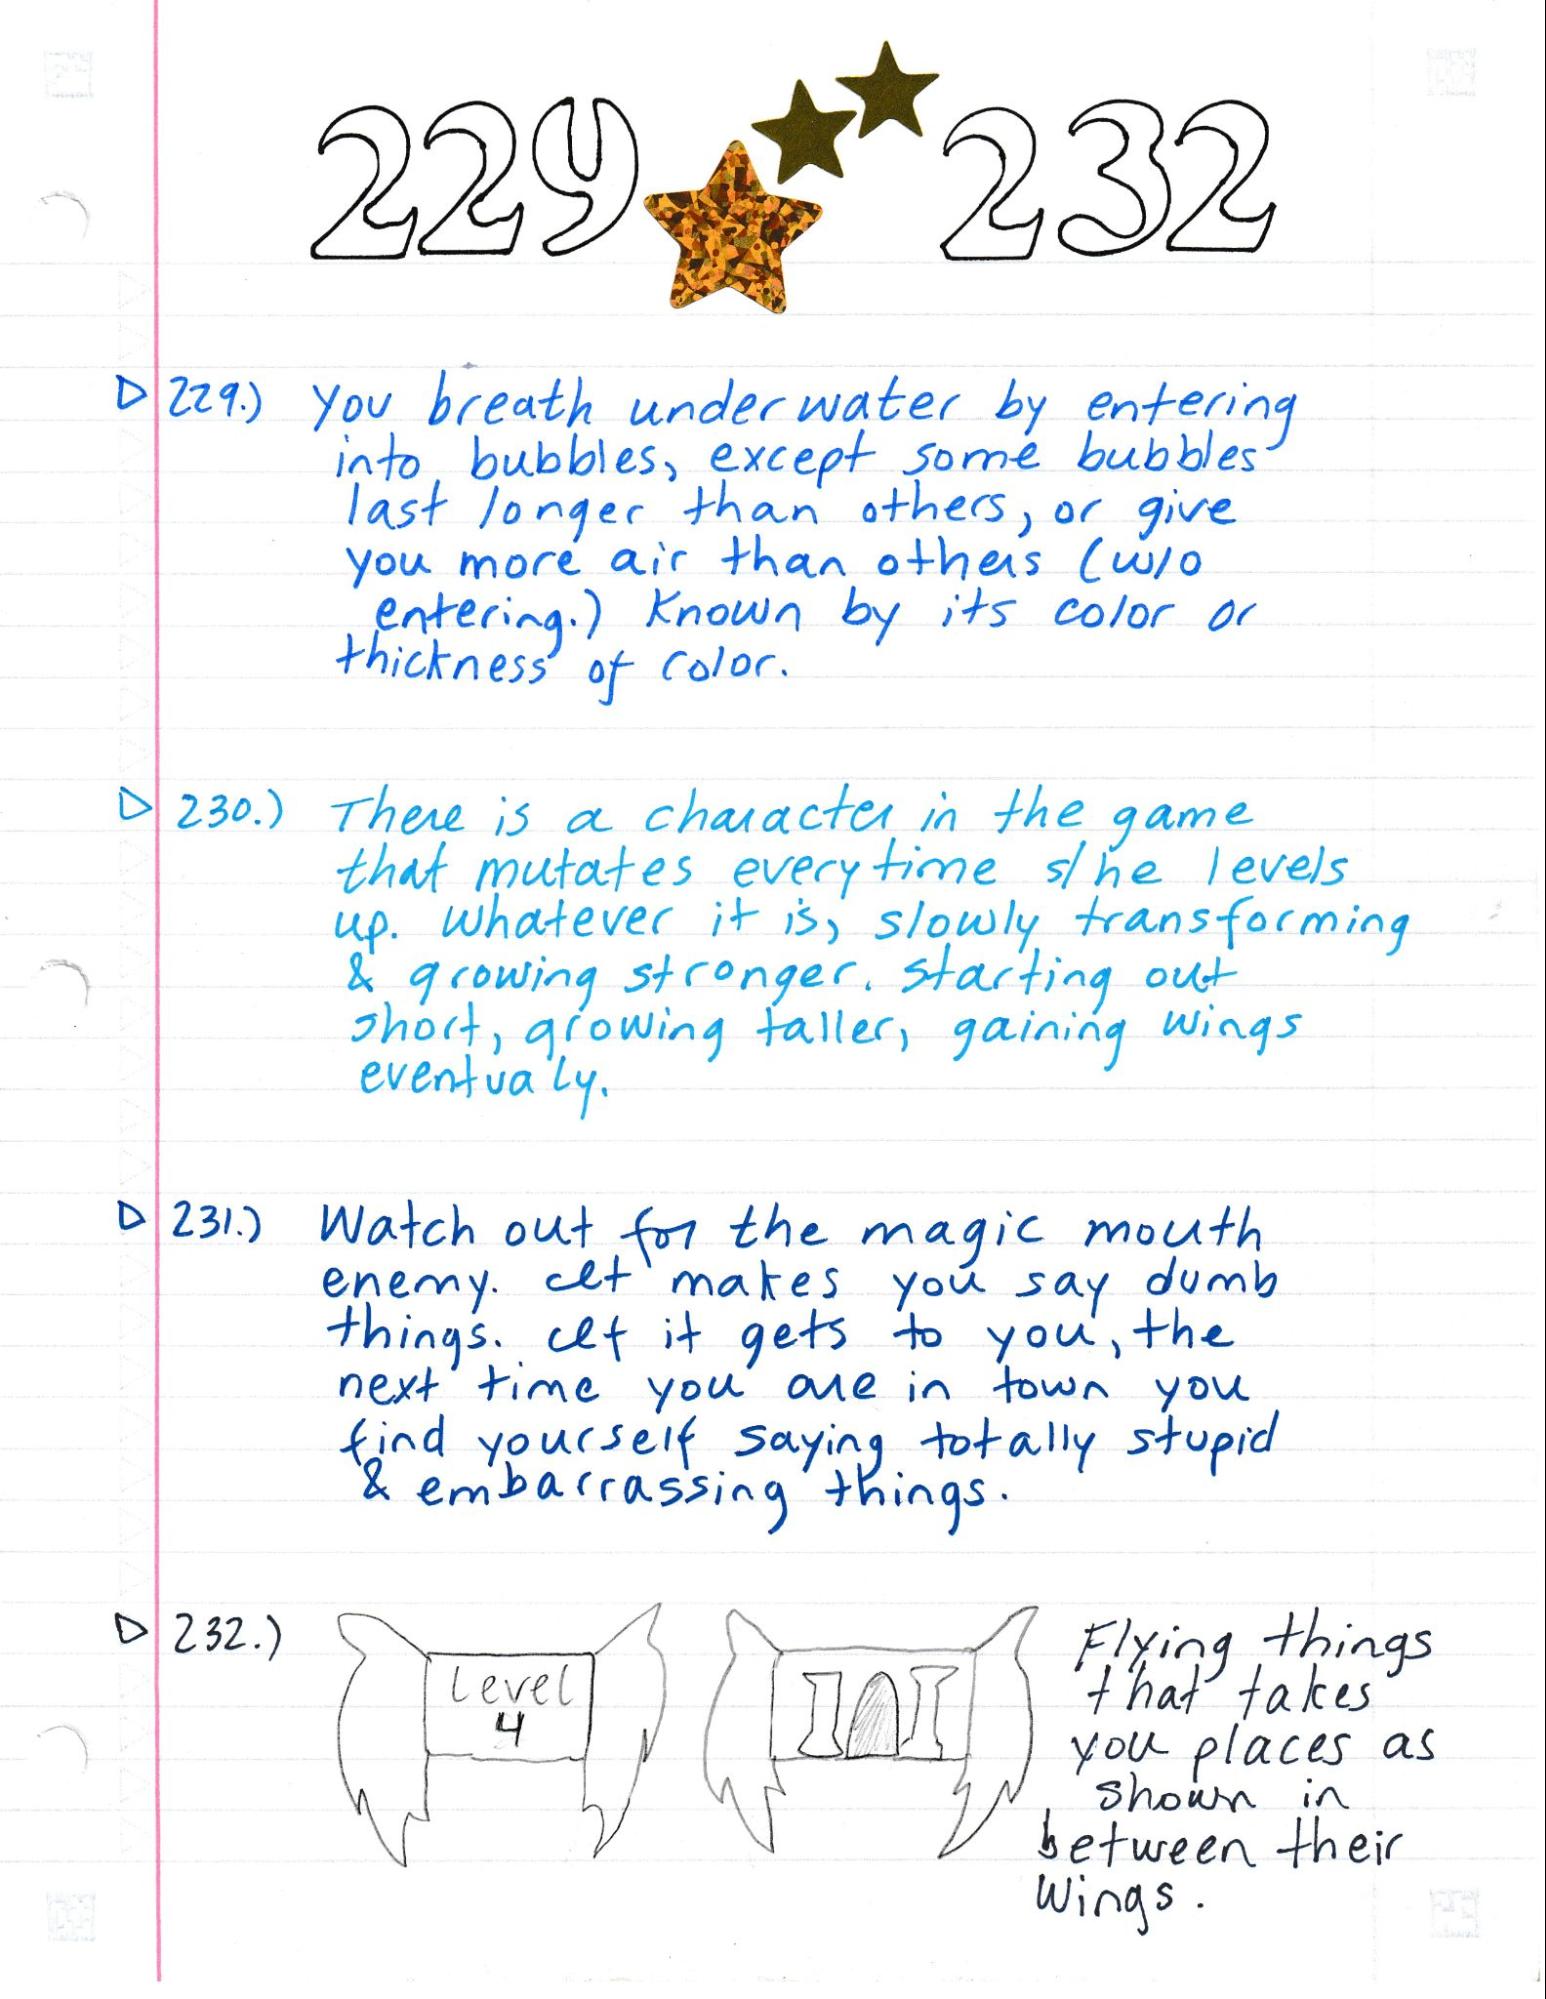 229 232
229.) You breath underwater by entering
into bubbles, except some bubbles
last longer than others, or give
you more air than others (w/o
entering.) Known by its color or
thickness of color.
230.) There is a character in the game
that mutates everytime s/he levels
up. Whatever it is, slowly transforming
& growing stronger. Starting out
short, growing taller, gaining wings
eventualy.
231.) Watch out for the magic mouth
enemy. It makes you say dumb
things. If it gets to you, the
next time you are in town you
find yourself saying totally stupid
& embarrassing things.
232.)
Level
4
Flying things
that takes
you places as
shown in
between their
wings.